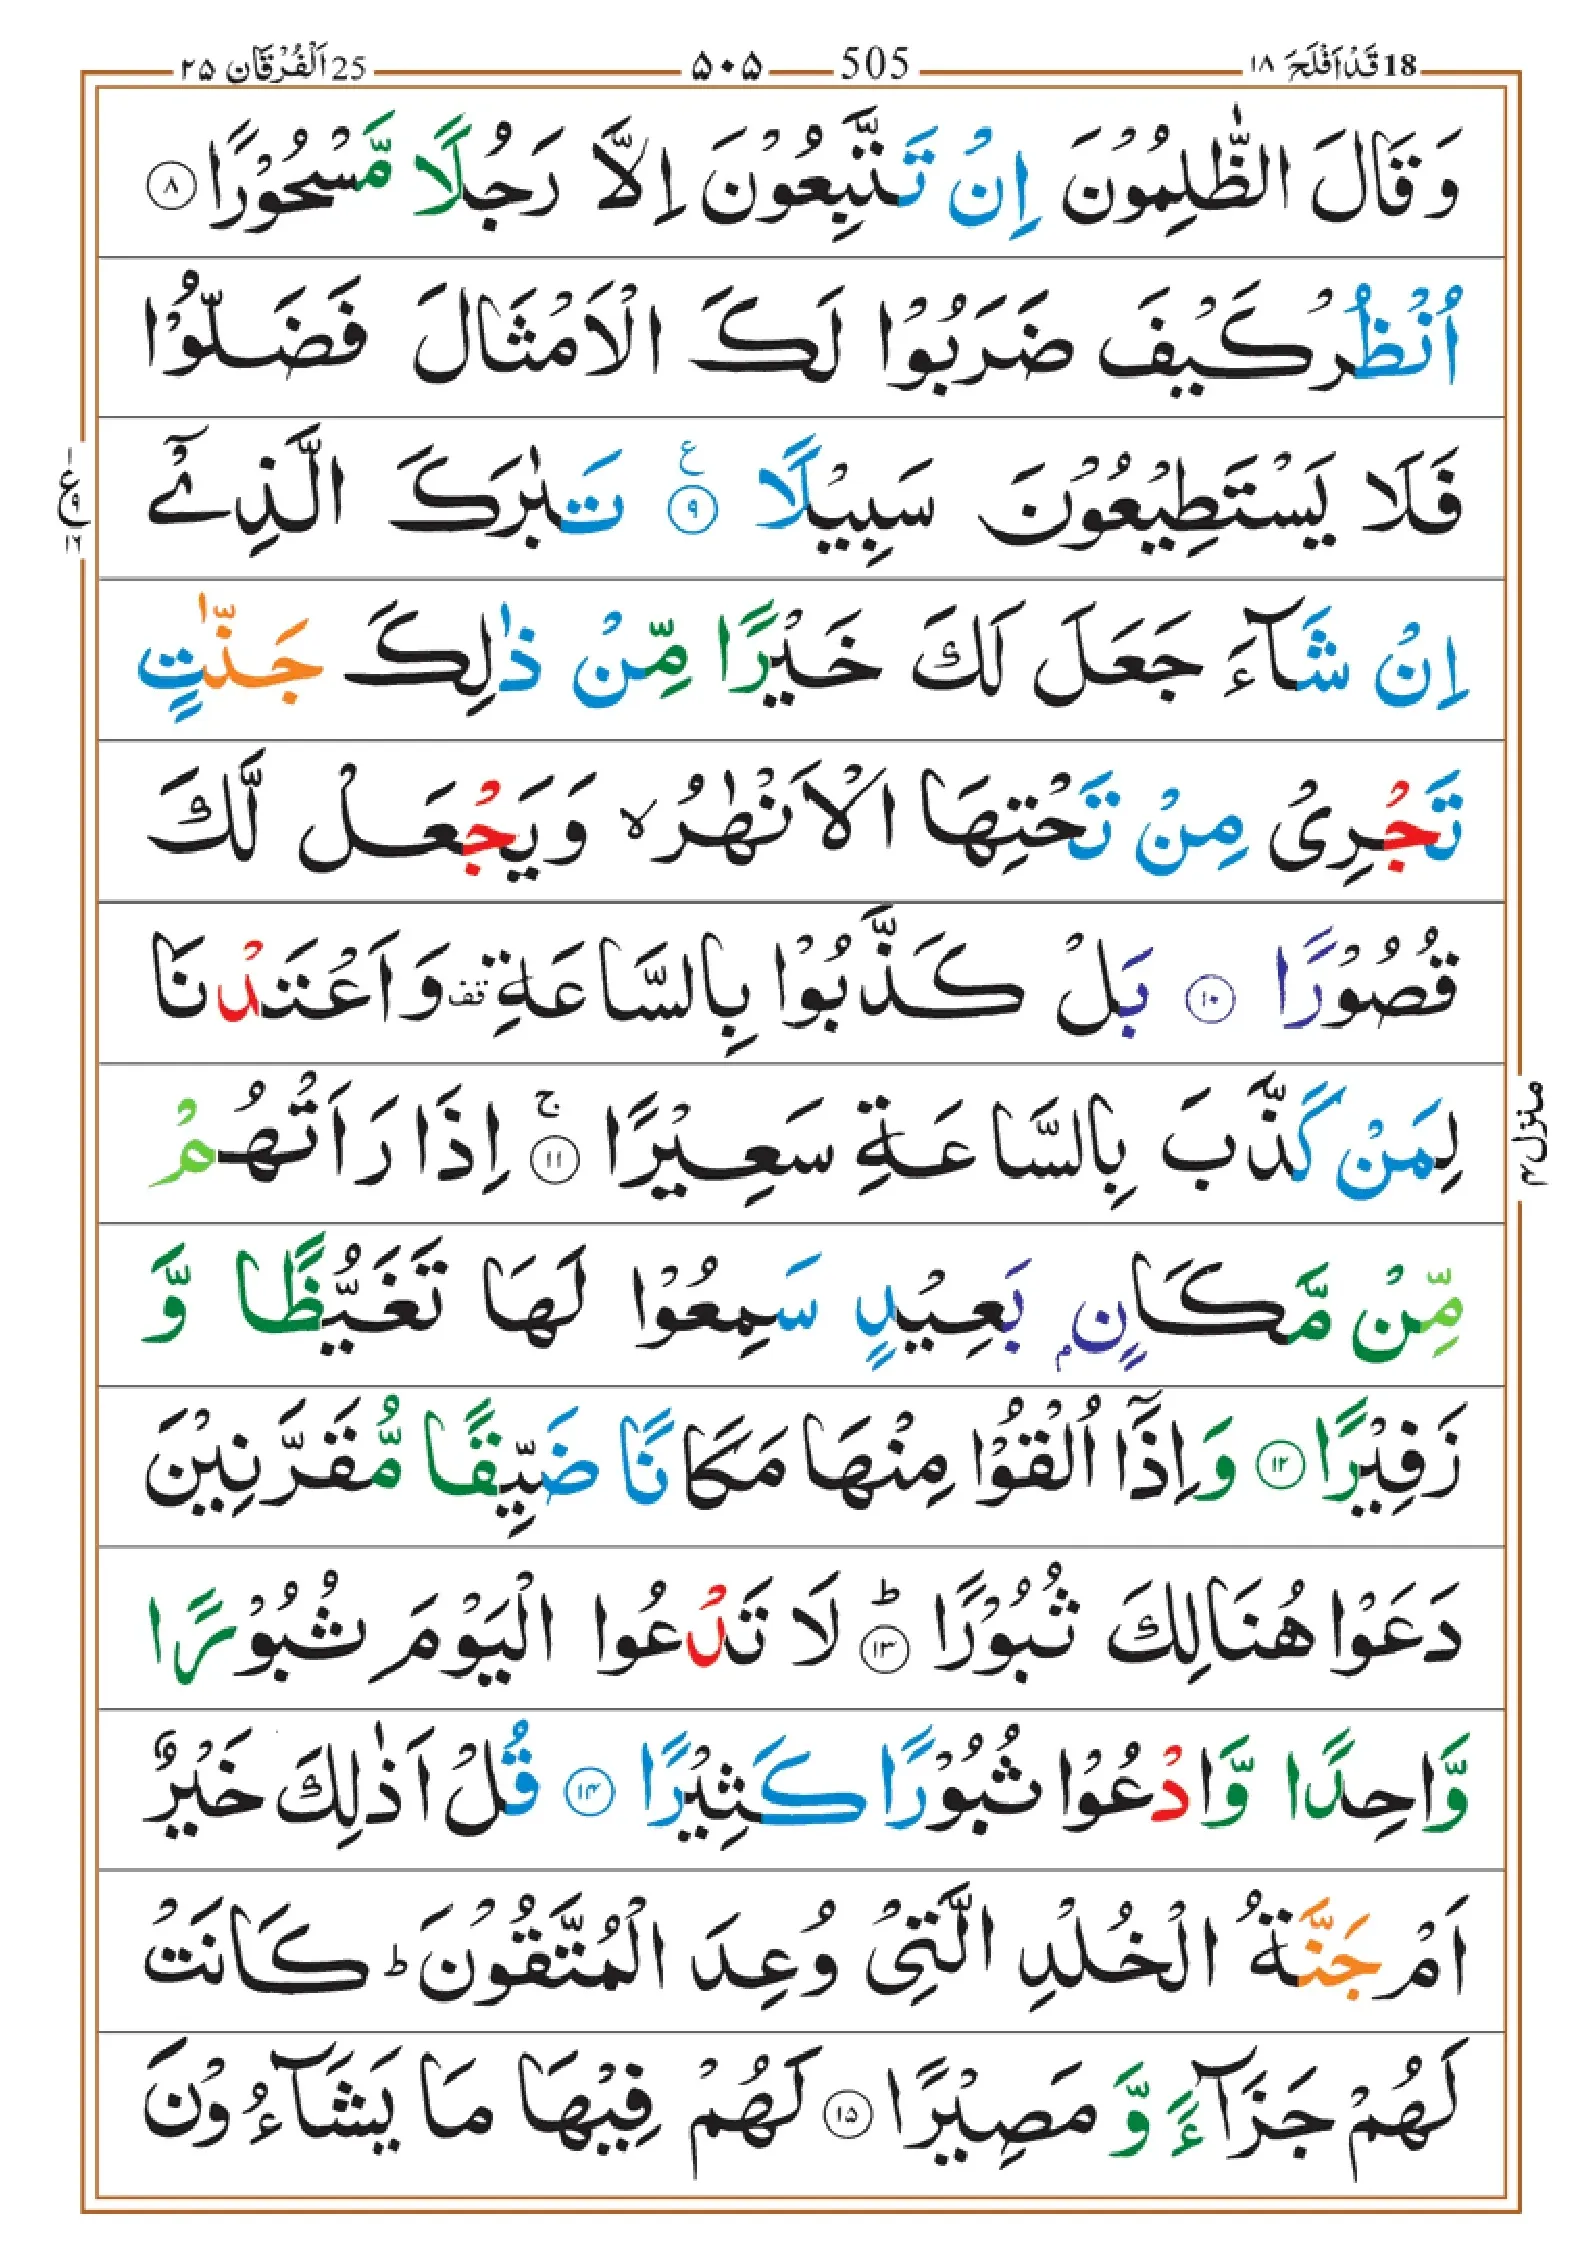 18 قَدْ اَفْلَحَ ١٨
505 ۵۰۵
25 اَلْفُرْقَان ٢۵
وَ قَالَ الظّٰلِمُوْنَ اِنْ تَتَّبِعُوْنَ اِلَّا رَجُلًا مَّسْحُوْرًا ٨
اُنْظُرْ كَيْفَ ضَرَبُوْا لَكَ الْاَمْثَالَ فَضَلُّوْا
فَلَا يَسْتَطِيْعُوْنَ سَبِيْلًا ٩ ع تَبٰرَكَ الَّذِيْۤ
اِنْ شَآءَ جَعَلَ لَكَ خَيْرًا مِّنْ ذٰلِكَ جَنّٰتٍ
تَجْرِيْ مِنْ تَحْتِهَا الْاَنْهٰرُ ۙ وَيَجْعَلْ لَّكَ
قُصُوْرًا ١٠ بَلْ كَذَّبُوْا بِالسَّاعَةِ قف وَاَعْتَدْنَا
لِمَنْ كَذَّبَ بِالسَّاعَةِ سَعِيْرًا ١١ ج اِذَا رَاَتْهُمْ
مِّنْ مَّكَانٍۭ بَعِيْدٍ سَمِعُوْا لَهَا تَغَيُّظًا وَّ
زَفِيْرًا ١٢ وَاِذَاۤ اُلْقُوْا مِنْهَا مَكَانًا ضَيِّقًا مُّقَرَّنِيْنَ
دَعَوْا هُنَالِكَ ثُبُوْرًا ١٣ ط لَا تَدْعُوا الْيَوْمَ ثُبُوْرًا
وَّاحِدًا وَّادْعُوْا ثُبُوْرًا كَثِيْرًا ١۴ قُلْ اَذٰلِكَ خَيْرٌ
اَمْ جَنَّةُ الْخُلْدِ الَّتِيْ وُعِدَ الْمُتَّقُوْنَ ؕ كَانَتْ
لَهُمْ جَزَآءً وَّ مَصِيْرًا ١۵ لَهُمْ فِيْهَا مَا يَشَآءُوْنَ
ع ١ ٩ ١٦
منزل ۴